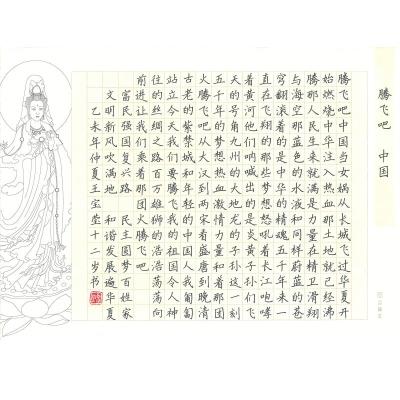 腾飞吧 中国
腾飞吧中国当女娲从长城飞过华夏开
始燃烧中华注入热血那土地就已经沸
腾那人民生来就满是力量在精卫滑翔
与海空那蓝色的水液和同样蔚蓝的苍
穹翻滚着的是中华的精魂五千年来一
直在飞翔的那些梦想怒吼着长江咆哮
着黄河他们呐喊出的是炎黄子孙们飞
天的号角九州的大地龙的子孙这一刻
五千年的梦想热血激情力量和着那团
火腾飞吧从大汉到两宋着盛唐到晚清
古老的紫禁城和年轻的中国人我匍匐
站立今天我们要腾飞我的祖国令人神
往的丝绸之路百万雄狮的浩浩荡荡向
前进让我们乘着那团火腾飞吧
富民强国复兴路 民主圆梦百姓家
文明新风吹满地 和谐发展遍华夏
乙未年仲夏王宝莹十二岁书